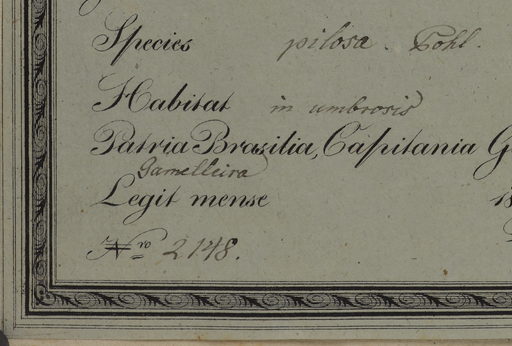 Species pilosa. Pohl.
Habitat in umbrosis
Patria Brasilia, Capitania G
Gamelleira
Legit mense 18
Nro 2148.